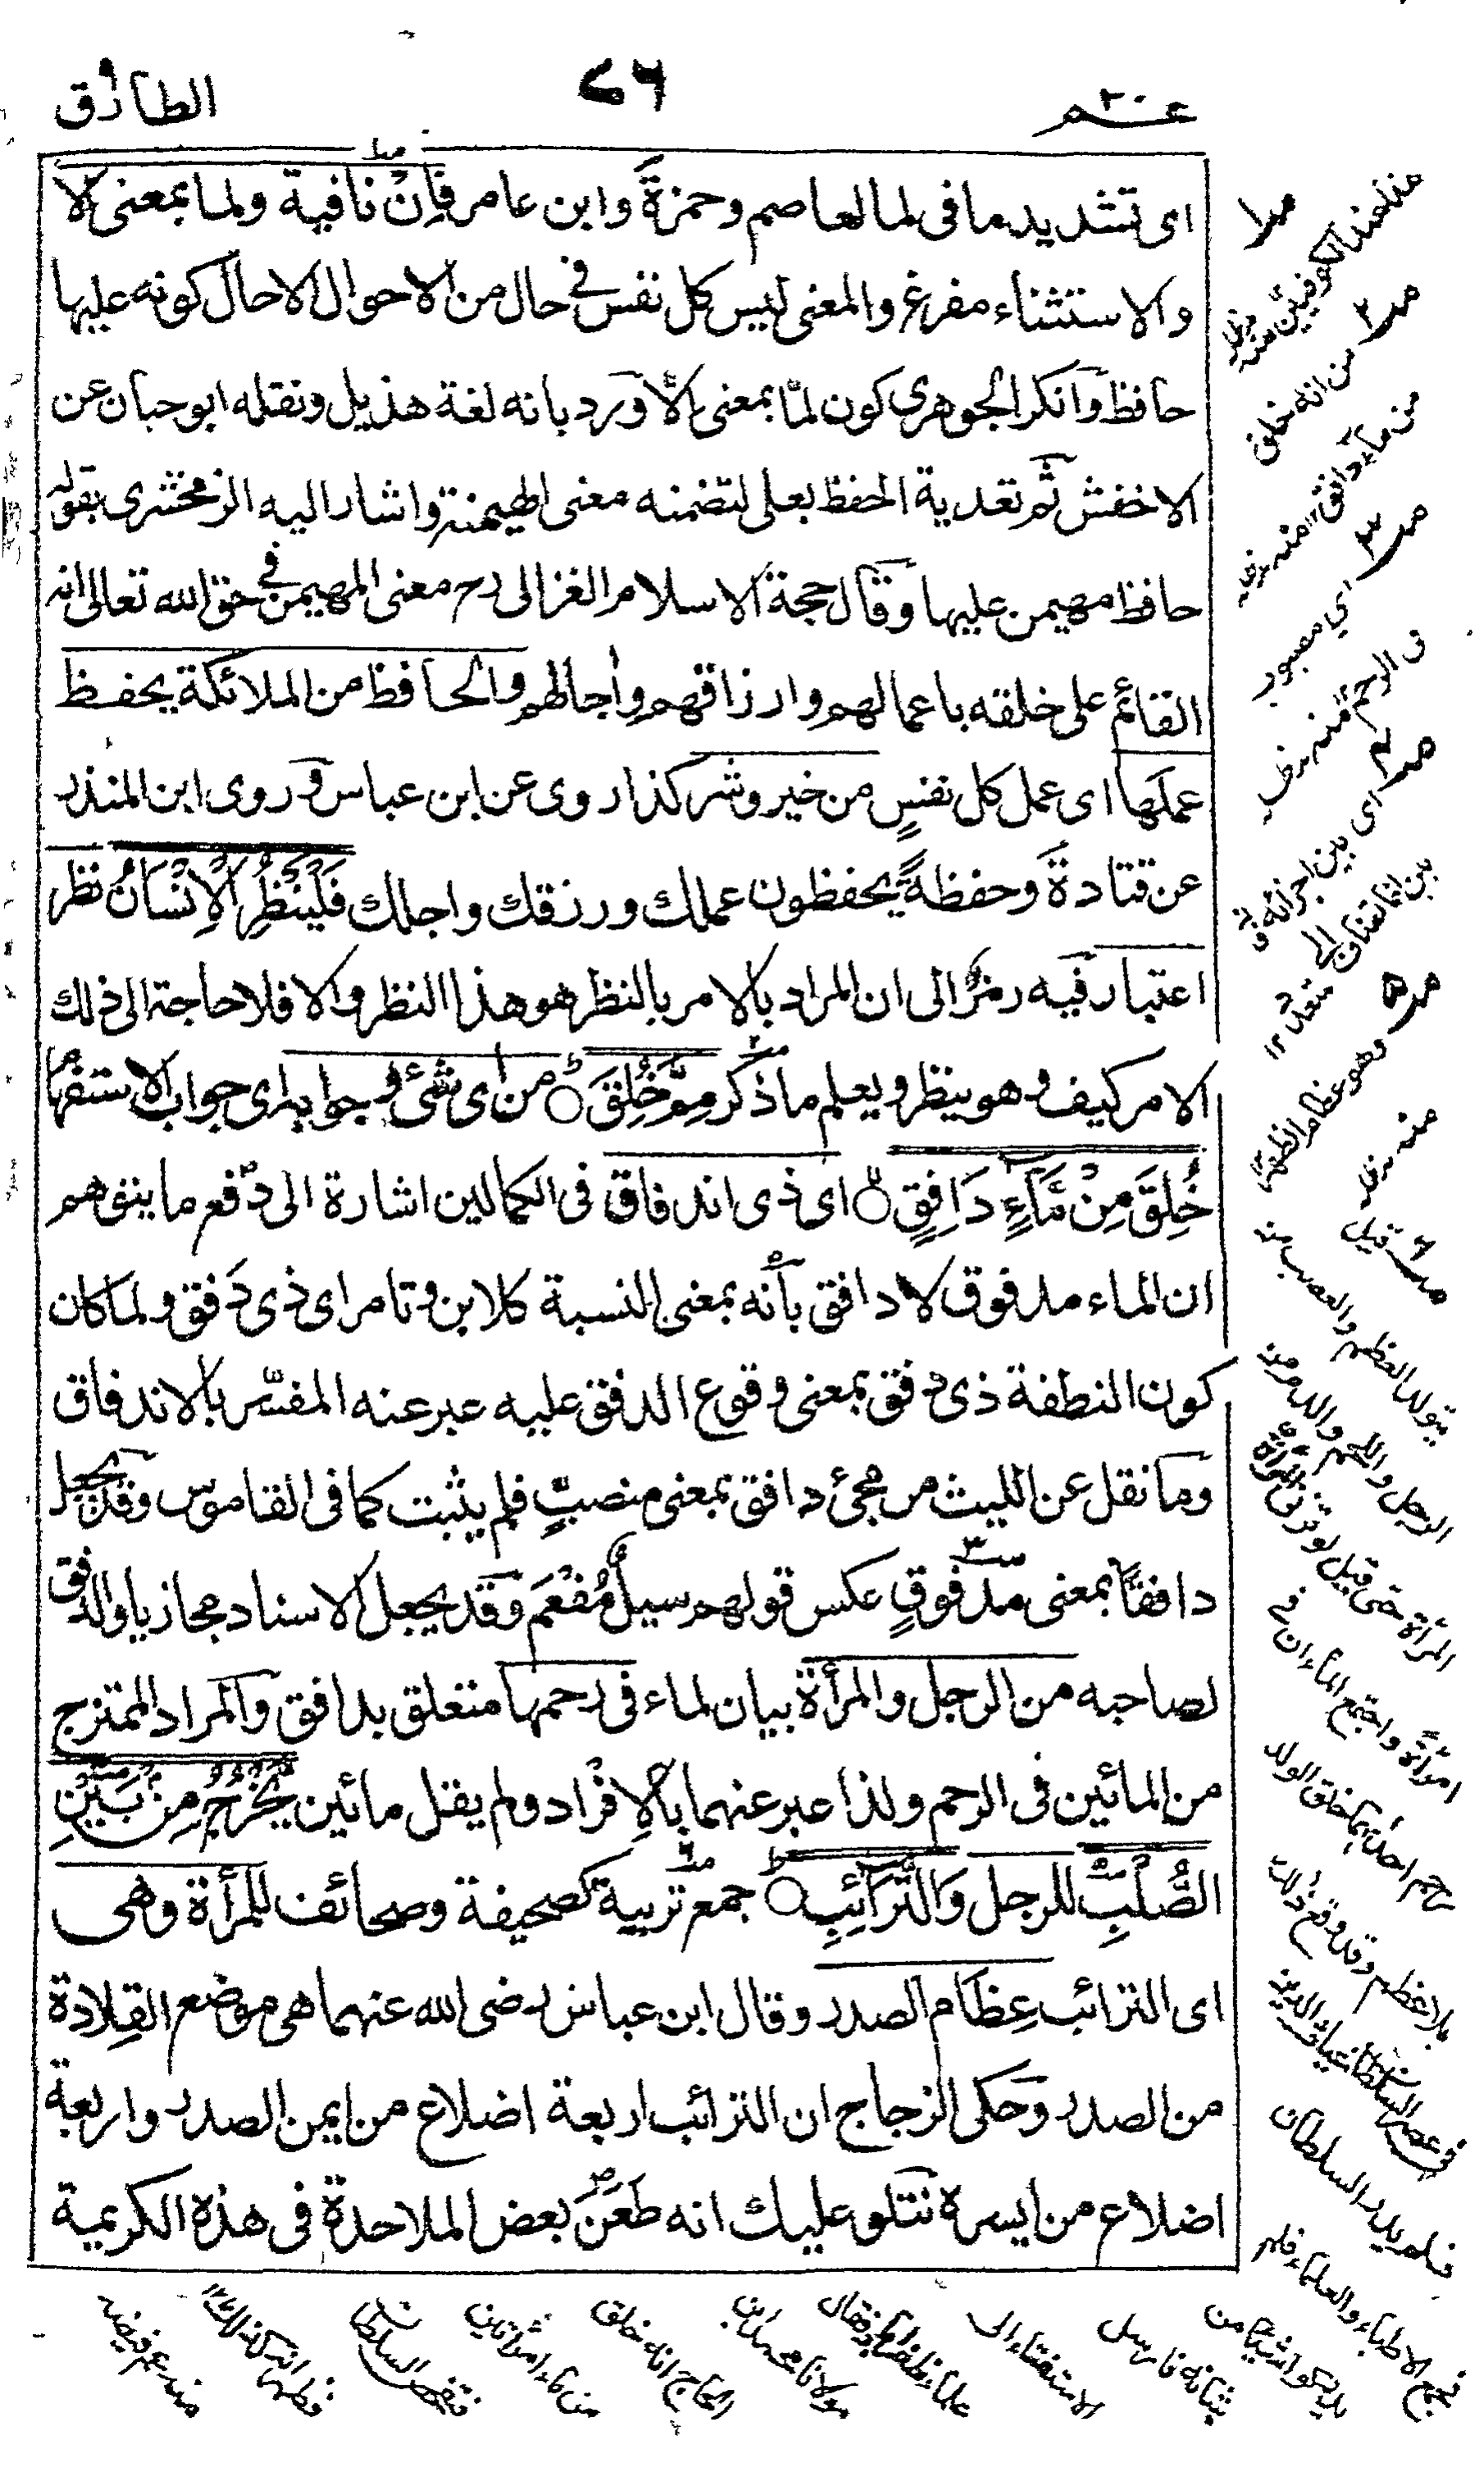 عم٣٠
٧٦
الطارق
اى تشديد ما فى لما لعاصم وحمزة وابن عامر فان نافية ولما بمعنى الا
والاستثناء مفرغ والمعنى ليس كل نفس فى حال من الاحوال الا حال كونه عليها
حافظ وانكر الجوهرى كون لمّا بمعنى إلّا ورد بانه لغة هذيل ونقله ابو حبان عن
الاخفش ثم تعدية الحفظ بعلى لتضمنه معنى الهيمنة واشار اليه الزمخشرى بقوله
حافظ مهيمن عليها وقال حجة الاسلام الغزالى رح معنى المهيمن فى حق الله تعالى انه
القائم على خلقه باعمالهم وارزاقهم واجالهم والحافظ من الملائكة يحفظ
عملها اى عمل كل نفسٍ من خير وشر كذا روى عن ابن عباس وروى ابن المنذر
عن قتادة وحفظةً يحفظون عملك ورزقك واجلك فَلْيَنْظُرِ الْاِنْسَانُ نظر
اعتبار فيه رمز الى ان المراد بالامر بالنظر هو هذا النظر والا فلا حاجة الى ذلك
الامر كيف وهو ينظر ويعلم ما ذكر مِمَّ خُلِقَ من اى شئ وجوابه اى جواب الاستفهام
خُلِقَ مِنْ مَّآءٍ دَافِقٍ اى ذى اندفاق فى الكمالين اشارة الى دفع ما يتوهم
ان الماء مدفوق لا دافق بأنه بمعنى النسبة كلابن وتامر اى ذى دَفق ولما كان
كون النطفة ذى دفق بمعنى وقوع الدفق عليه عبر عنه المفسّر بالاندفاق
وما نقل عن الليث من مجئ دافق بمعنى منصبٍّ فلم يثبت كما فى القاموس وقد يجعل
دافقًا بمعنى مدفوقٍ عكس قولهم سيلٌ مُفْعَم وقد يجعل الاسناد مجازيا والدفق
لصاحبه من الرجل والمرأة بيان لماء فى رحمها متعلق بدافق والمراد الممتزج
من المائين فى الرحم ولذا عبر عنهما بالافراد ولم يقل مائين يَخْرُجُ مِنْ بَيْنِ
الصُّلْبِ للرجل وَالتَّرَآئِبِ جمع تريبة كصحيفة وصحائف للمرأة وهى
اى الترائب عِظَام الصدر وقال ابن عباس رضى الله عنهما هى موضع القِلادة
من الصدر وحكى الزجاج ان الترائب اربعة اضلاع من ايمن الصدر واربعة
اضلاع من ايسره نتلو عليك انه طَعَنَ بعض الملاحدة فى هذه الكريمة
من انه خلق
من ماء دافق
اى مصبور
فى الرحم
اى بين اجزائه
وهو عظام الظهر
قيل
يتولد العظم والعصب من
الرجل واللحم والدم من
المرأة حتى قيل لو
امرأة واجتمع الماءان فى
بلا عظم وقد وقع ذلك
فلم يدر السلطان
فجمع الاطباء والعلماء فلم